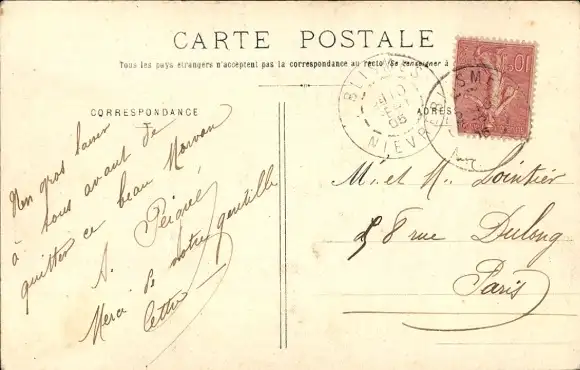 CARTE POSTALE
Tous les pays étrangers n'acceptent pas la correspondance au recto (Se renseigner à
CORRESPONDANCE
ADRES
BLISMES
10
05
NIEVRE
10
Un gros baiser
à vous avant de
quitter ce beau Morvan
A. Peigné
Merci de votre gentille
lettre
M. et M. Lointier
58 rue Dulong
Paris